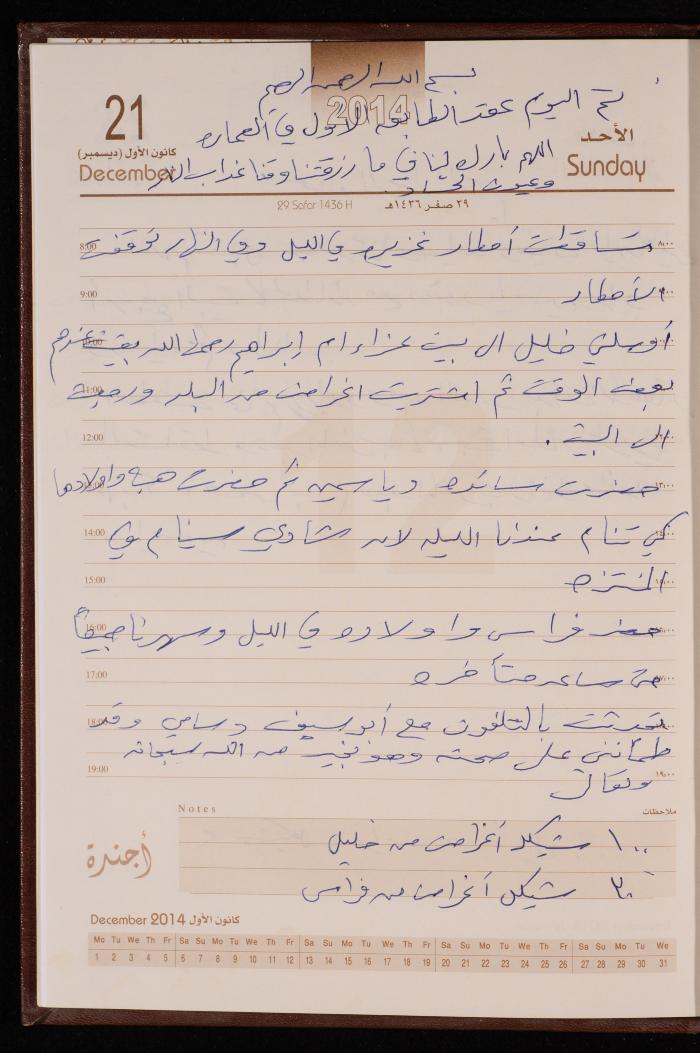 بسم الله الرحمن الرحيم
تم اليوم عقد الطابق الاول في العماره
اللهم بارك لنا في ما رزقتنا وقنا عذاب النار
وعيون الحساد
2014
21
كانون الأول (ديسمبر)
December
الأحد
Sunday
29 Safar 1436 H
٢٩ صفر ١٤٣٦هـ
8:00 تساقطت أمطار غزيره في الليل وفي النهار توقفت ٨:٠٠
9:00 الأمطار
أوصلني خليل ال بيت عزاء ام إبراهيم رحمها الله بقيت عندهم
11:00 بعض الوقت ثم اشتريت اغراض من البلد ورجعت
12:00 الى البيت .
حضرت سائده وياسمين ثم حضرت هبه واولادها ١٣:٠٠
14:00 كي تنام عندنا الليله لان شادي سينام في ١٤:٠٠
15:00 المنتزه
16:00 حضر فراس واولاده في الليل وسهرنا جميعاً
17:00 حتى ساعه متأخره
18:00 تحدثت بالتلفون مع أبو سيف وسامي وقد
طمأنني على صحته وهو بخير من الله سبحانه
19:00 وتعالى ١٩:٠٠
Notes
ملاحظات
١٠٠ شيكل أغراض من خليل
أجندة
٣٠ شيكل أغراض من فراس
December 2014 كانون الأول
Mo Tu We Th Fr Sa Su Mo Tu We Th Fr Sa Su Mo Tu We Th Fr Sa Su Mo Tu We Th Fr Sa Su Mo Tu We
1 2 3 4 5 6 7 8 9 10 11 12 13 14 15 16 17 18 19 20 21 22 23 24 25 26 27 28 29 30 31